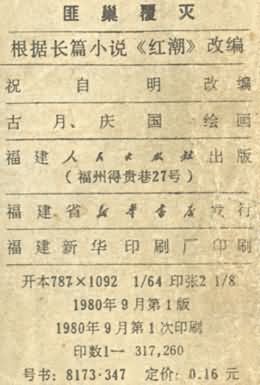 匪巢覆灭
根据长篇小说《红潮》改编
祝自明改编
古月、庆国绘画
福建人民出版社出版
(福州得贵巷27号)
福建省新华书店发行
福建新华印刷厂印刷
开本787×1092 1/64 印张2 1/8
1980年9月第1版
1980年9月第1次印刷
印数1— 317,260
号书:8173·347 定价:0.16元